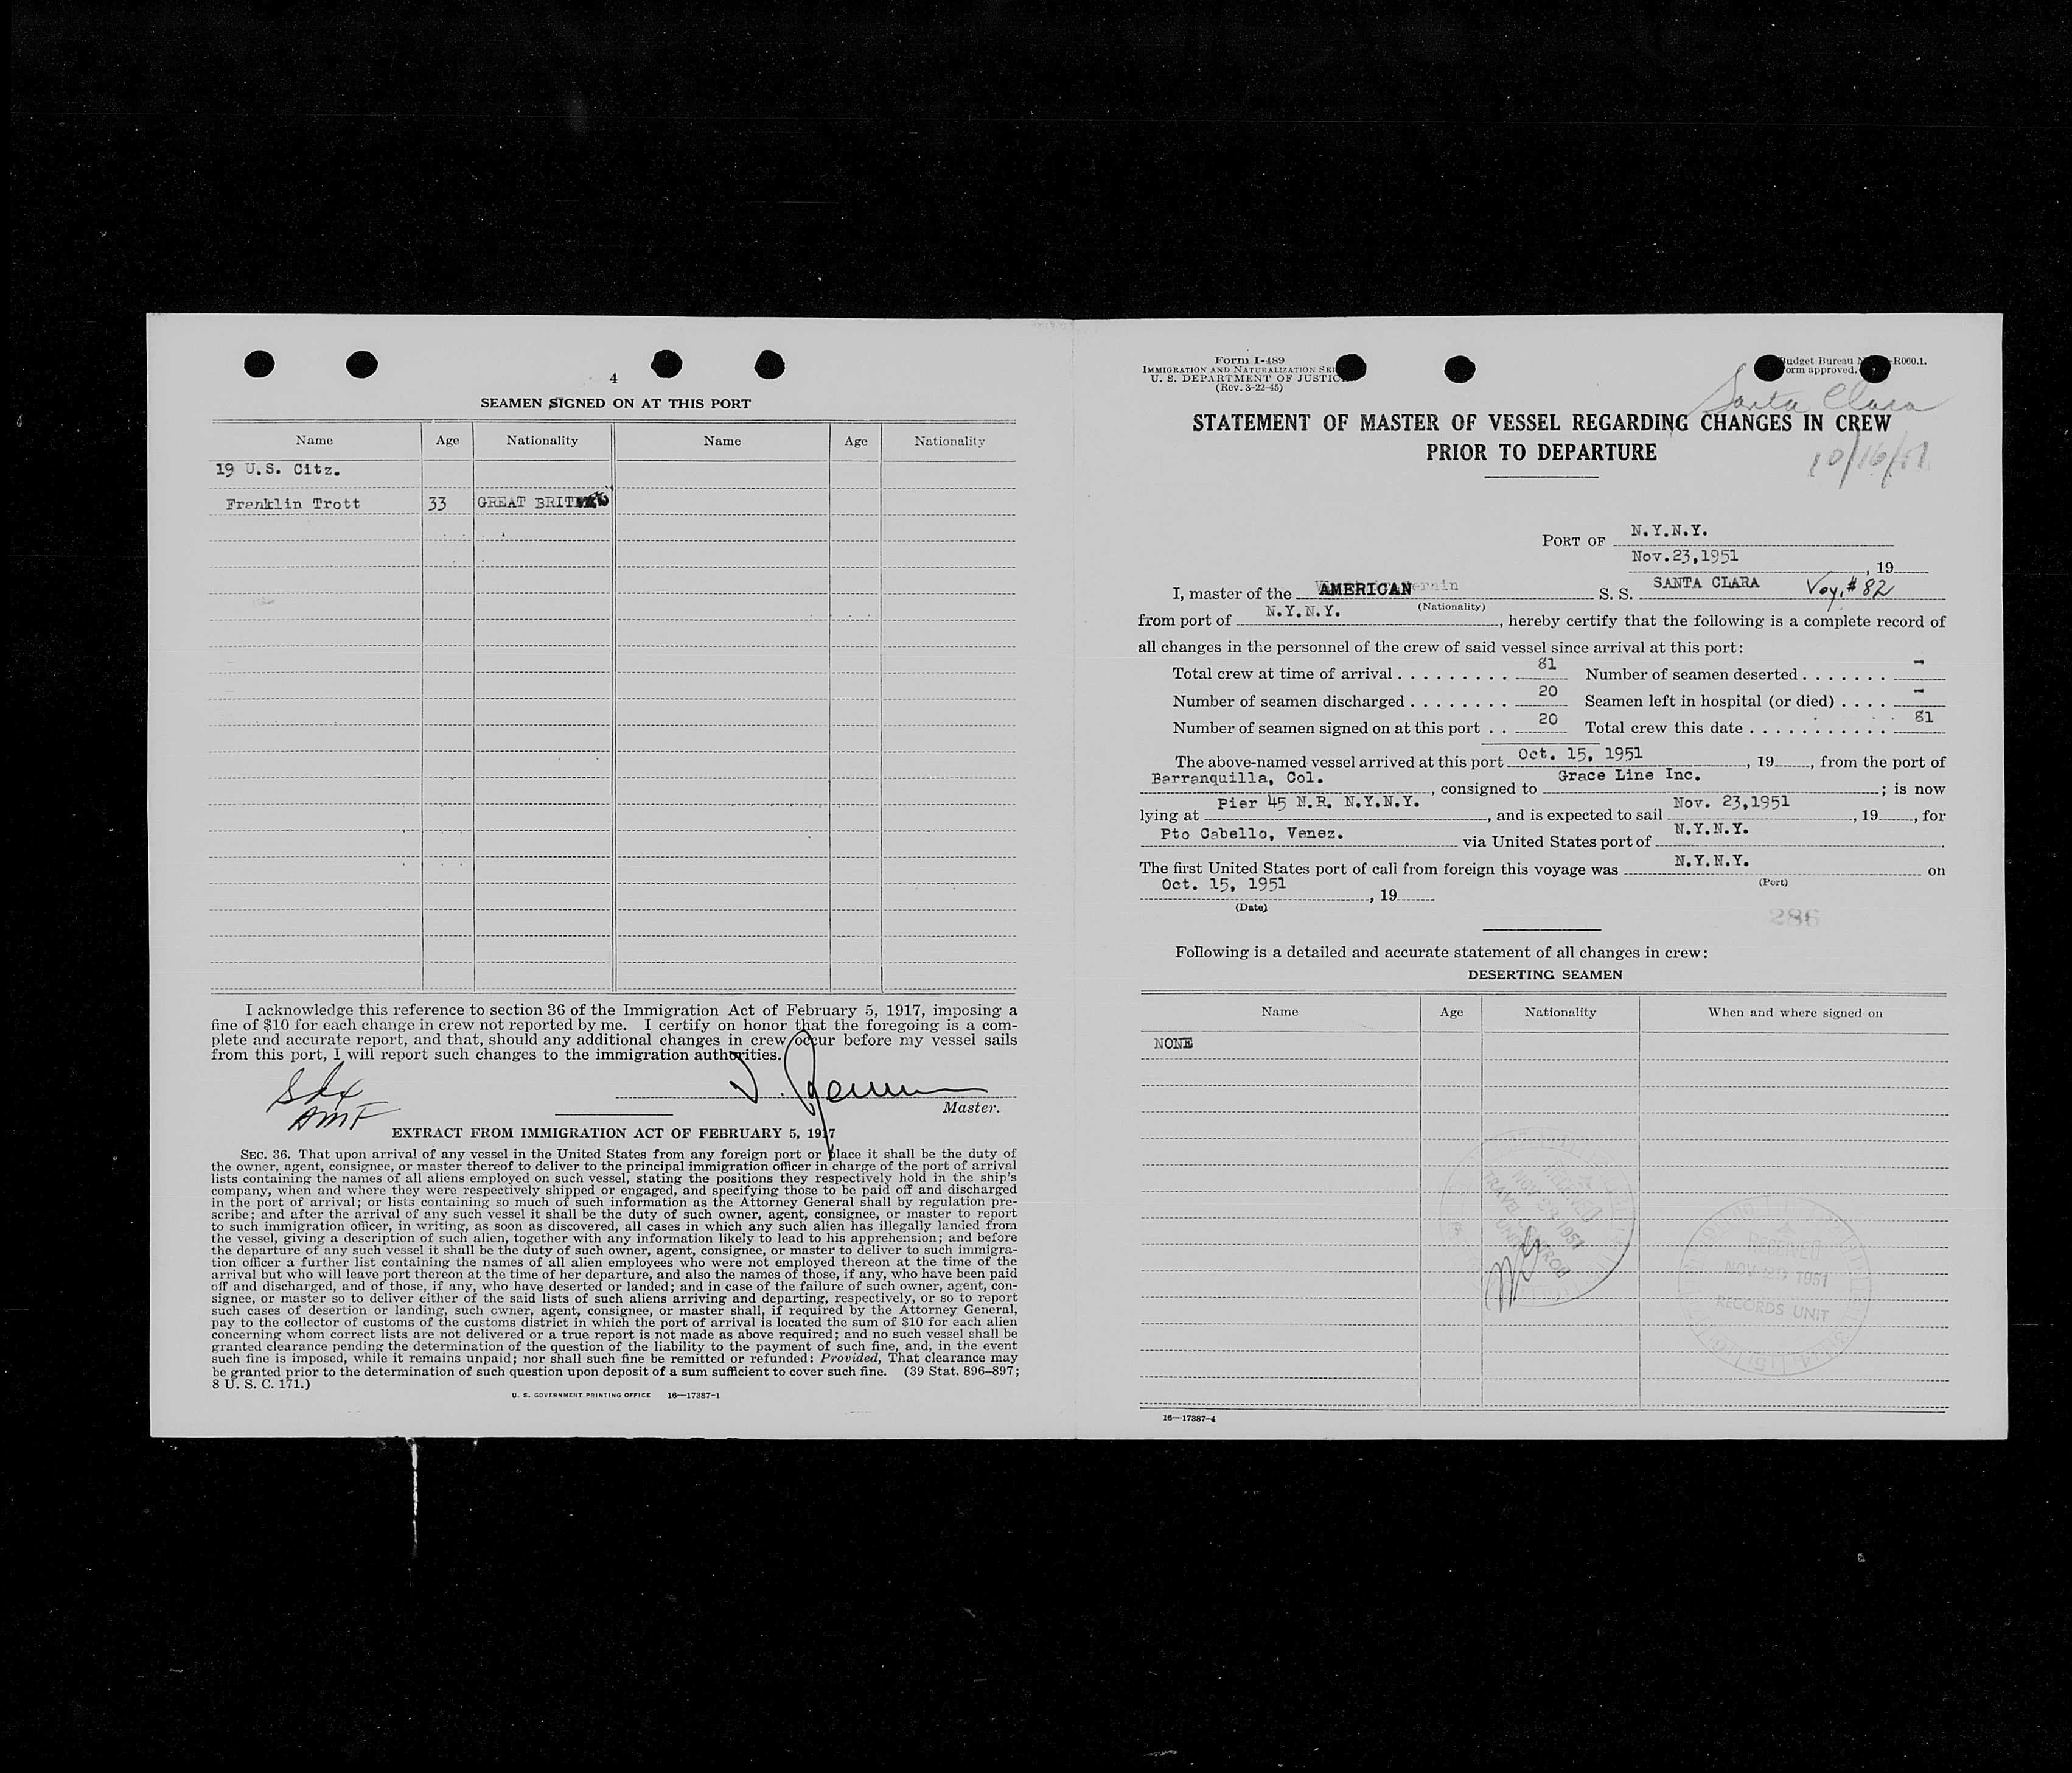 4
SEAMEN SIGNED ON AT THIS PORT
Name Age Nationality Name Age Nationality
19 U.S. Citz.
Franklin Trott 33 GREAT BRIT
I acknowledge this reference to section 36 of the Immigration Act of February 5, 1917, imposing a
fine of $10 for each change in crew not reported by me. I certify on honor that the foregoing is a com-
plete and accurate report, and that, should any additional changes in crew occur before my vessel sails
from this port, I will report such changes to the immigration authorities.
Master.
EXTRACT FROM IMMIGRATION ACT OF FEBRUARY 5, 1917
SEC. 36. That upon arrival of any vessel in the United States from any foreign port or place it shall be the duty of
the owner, agent, consignee, or master thereof to deliver to the principal immigration officer in charge of the port of arrival
lists containing the names of all aliens employed on such vessel, stating the positions they respectively hold in the ship's
company, when and where they were respectively shipped or engaged, and specifying those to be paid off and discharged
in the port of arrival; or lists containing so much of such information as the Attorney General shall by regulation pre-
scribe; and after the arrival of any such vessel it shall be the duty of such owner, agent, consignee, or master to report
to such immigration officer, in writing, as soon as discovered, all cases in which any such alien has illegally landed from
the vessel, giving a description of such alien, together with any information likely to lead to his apprehension; and before
the departure of any such vessel it shall be the duty of such owner, agent, consignee, or master to deliver to such immigra-
tion officer a further list containing the names of all alien employees who were not employed thereon at the time of the
arrival but who will leave port thereon at the time of her departure, and also the names of those, if any, who have been paid
off and discharged, and of those, if any, who have deserted or landed; and in case of the failure of such owner, agent, con-
signee, or master so to deliver either of the said lists of such aliens arriving and departing, respectively, or so to report
such cases of desertion or landing, such owner, agent, consignee, or master shall, if required by the Attorney General,
pay to the collector of customs of the customs district in which the port of arrival is located the sum of $10 for each alien
concerning whom correct lists are not delivered or a true report is not made as above required; and no such vessel shall be
granted clearance pending the determination of the question of the liability to the payment of such fine, and, in the event
such fine is imposed, while it remains unpaid; nor shall such fine be remitted or refunded: Provided, That clearance may
be granted prior to the determination of such question upon deposit of a sum sufficient to cover such fine. (39 Stat. 896–897;
8 U. S. C. 171.)
U. S. GOVERNMENT PRINTING OFFICE 16—17387-1
Form I-489
IMMIGRATION AND NATURALIZATION
U. S. DEPARTMENT OF
(Rev. 3-22-45)
Budget Bureau R060.1.
Form approved.
Santa Clara
STATEMENT OF MASTER OF VESSEL REGARDING CHANGES IN CREW
PRIOR TO DEPARTURE
10/16/51
PORT OF N.Y.N.Y.
Nov.23,1951, 19
I, master of the AMERICAN S. S. SANTA CLARA Voy.#82
(Nationality)
from port of N.Y.N.Y., hereby certify that the following is a complete record of
all changes in the personnel of the crew of said vessel since arrival at this port:
Total crew at time of arrival 81 Number of seamen deserted -
Number of seamen discharged 20 Seamen left in hospital (or died) -
Number of seamen signed on at this port 20 Total crew this date 81
The above-named vessel arrived at this port Oct. 15, 1951, 19, from the port of
Barranquilla, Col., consigned to Grace Line Inc.; is now
lying at Pier 45 N.R. N.Y.N.Y., and is expected to sail Nov. 23,1951, 19, for
Pto Cabello, Venez. via United States port of N.Y.N.Y.
The first United States port of call from foreign this voyage was N.Y.N.Y. on
(Port)
Oct. 15, 1951, 19
(Date)
286
Following is a detailed and accurate statement of all changes in crew:
DESERTING SEAMEN
Name Age Nationality When and where signed on
NONE
RECEIVED
NOV 23 1951
TRAVEL CONTROL
UNIT
RECEIVED
NOV 29 1951
RECORDS UNIT
16—17387-4